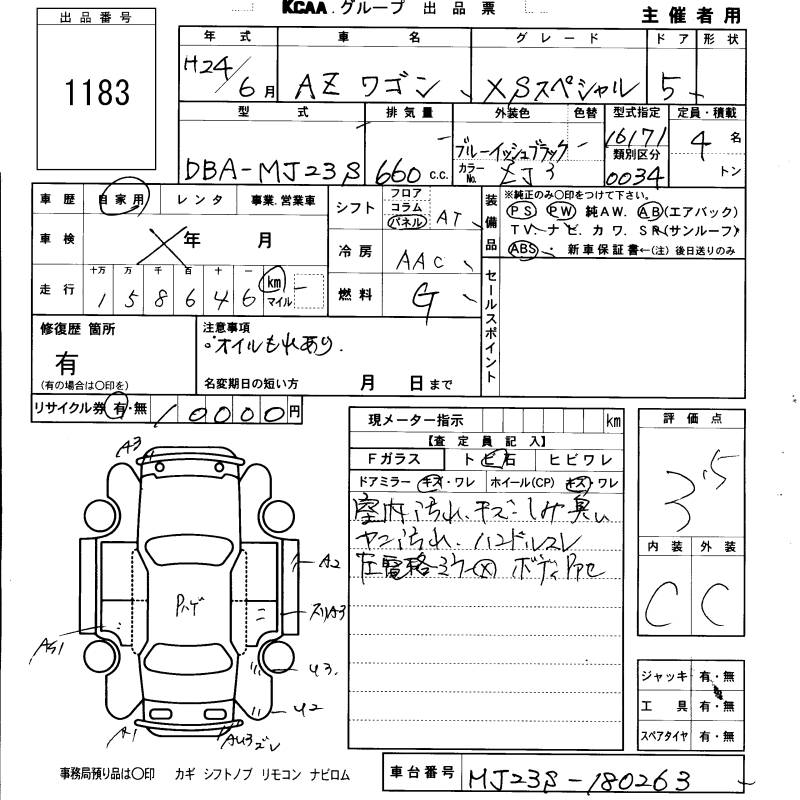 KCAA.グループ 出品票
主催者用
出品番号
1183
年式 車名 グレード ドア 形状
H24/6月 AZワゴン XSスペシャル 5
型式 排気量 外装色 色替 型式指定 定員・積載
DBA-MJ23S 660 c.c. ブルーイッシュブラック 16171 4名
カラーNo. ZJ3 類別区分 0034 トン
車歴 自家用 レンタ 事業.営業車
車検 年 月
走行 十万 万 千 百 十 一 km マイル
158646
シフト フロア コラム パネル AT
冷房 AAC
燃料 G
装備品
※純正のみ○印をつけて下さい。
PS PW 純AW. AB(エアバック)
TV. ナビ. カワ. SR(サンルーフ)
ABS ・ 新車保証書←(注)後日送りのみ
セールスポイント
修復歴 箇所
有
(有の場合は○印を)
注意事項
。オイルもれあり.
名変期日の短い方 月 日まで
リサイクル券 有・無 10000円
現メーター指示 km
【査定員記入】
Fガラス トビ石 ヒビワレ
ドアミラー キズ・ワレ ホイール(CP) キズ・ワレ
室内汚れ.キズ.しみ臭い
ヤニ汚れ.ハンドルスレ
左電格ミラー ボディ
評価点
3.5
内装 外装
C C
ジャッキ 有・無
工具 有・無
スペアタイヤ 有・無
A3
A2
A3
AS1
U3.
U2
A1
AU3 ズレ
事務局預り品は○印 カギ シフトノブ リモコン ナビロム
車台番号 MJ23S-180263